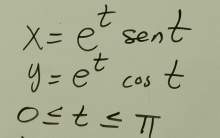 x = e^t sen t
y = e^t cos t
0 ≤ t ≤ π